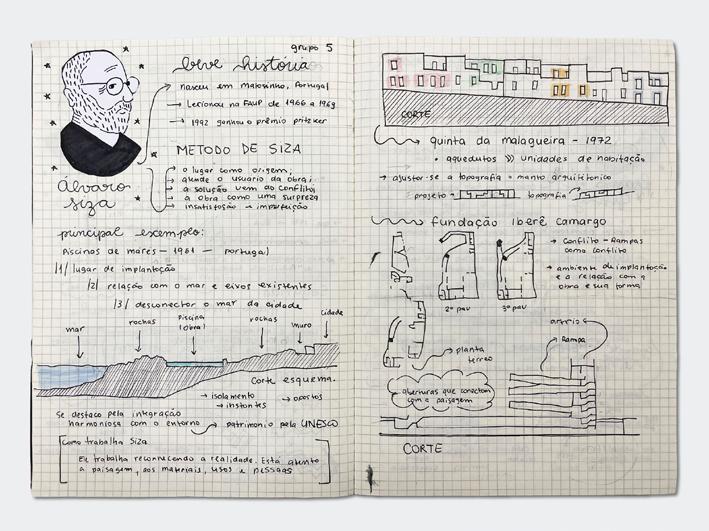 grupo 5
beve história
nasceu em Matosinho, Portugal
Lecionou na FAUP de 1966 a 1969
1992 ganhou o prêmio pritzker
METODO DE SIZA
o lugar como origem;
atende o usuario da obra;
a solução vem do conflito
a obra como uma surpreza
insatisfação → imperfeição
álvaro
siza
principal exemplo:
Piscinas de mares — 1961 — Portugal
|1| lugar de implantação
|2| relação com o mar e eixos existentes
|3| desconector o mar da cidade
mar
rochas
Piscina
(obra)
rochas
muro
cidade
Corte esquema.
→ isolamento
→ instantes
→ opostos
se destaca pela integração
harmoniosa com o entorno → patrimonio pela UNESCO
Como trabalha Siza
Ele trabalha reconhecendo a realidade. Está atento
a paisagem, aos materiais, usos e pessoas
CORTE
quinta da malagueira - 1972
• aquedutos » unidades de habitação
→ ajustar-se a topografia - manto arquitetonico
projeto →
topografia
fundação Iberê Camargo
2º pav
3º pav
→ Conflito - Rampas
como conflito
→ ambiente de implantação
e a relação com a
obra e sua forma
planta
terreo
Rampa
aberturas que conectam
com a paisagem
CORTE